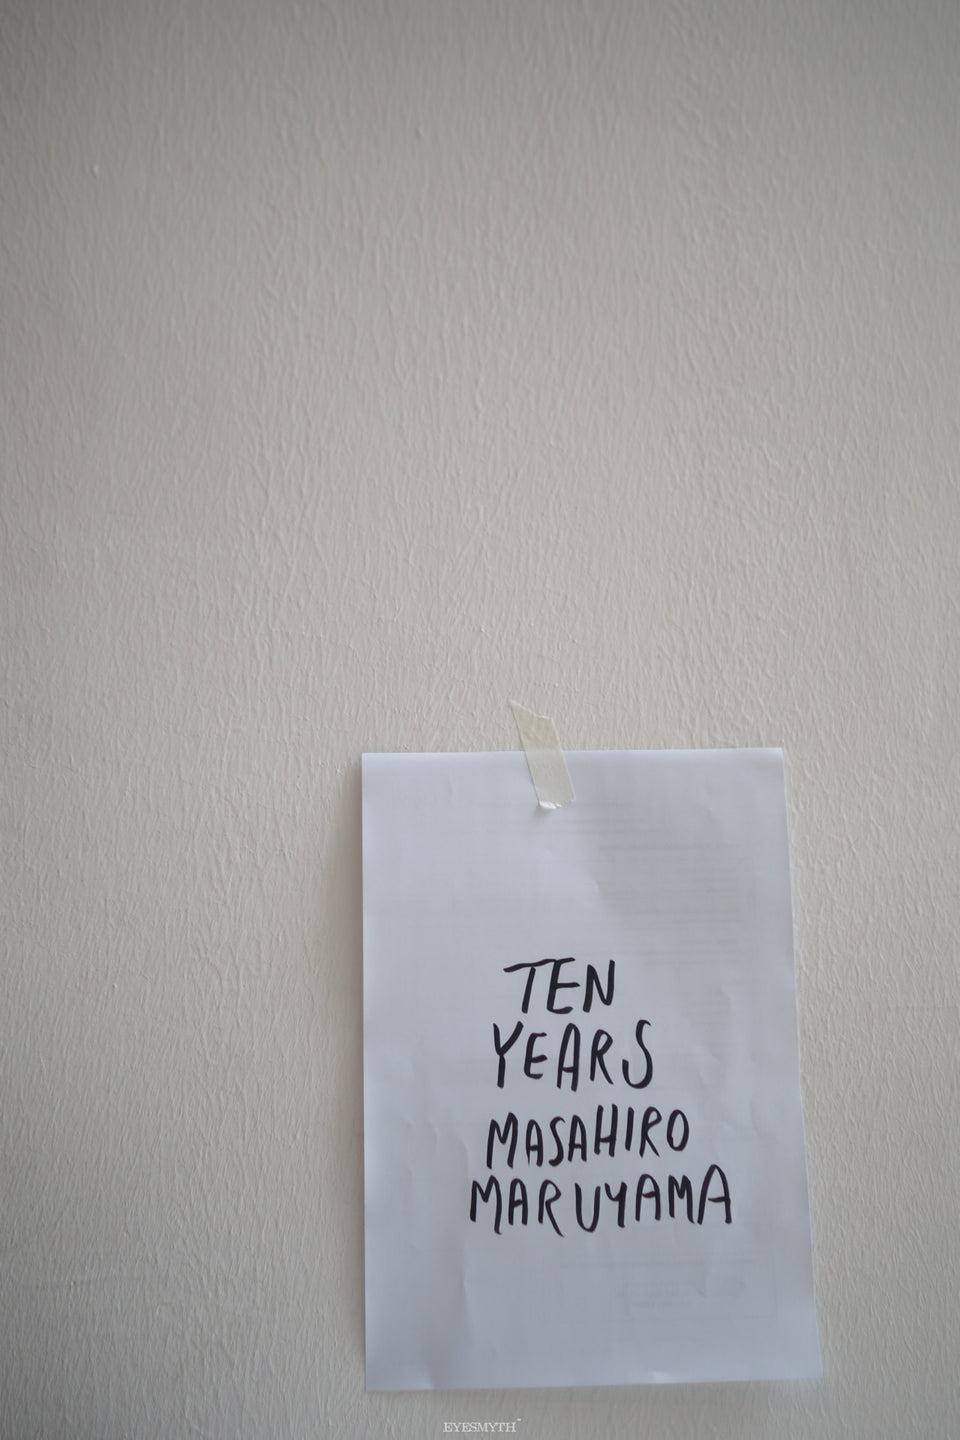 TEN
YEARS
MASAHIRO
MARUYAMA
EYESMYTH™